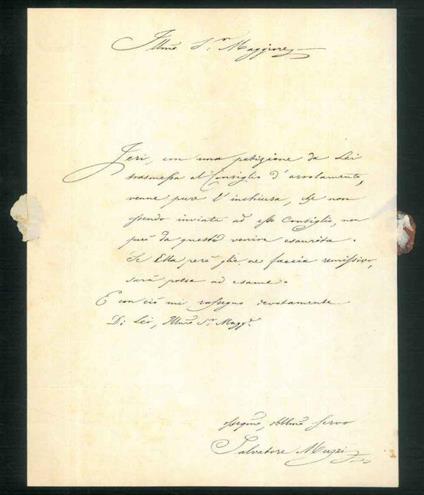 Illmō S.r Maggiore
Jeri, con una petizione da Lei
trasmessa al Consiglio d'arrolamento,
venne pure l'inchiusa, che non
essendo inviata ad esso Consiglio, non
può da questo venire esaurita.
Se Ella però glie ne faccia remissivo,
sarà presa ad esame.
E con ciò mi rassegno devotamente
Di Lei, Illmō S.r Magg.e
obblmō servo
Salvatore